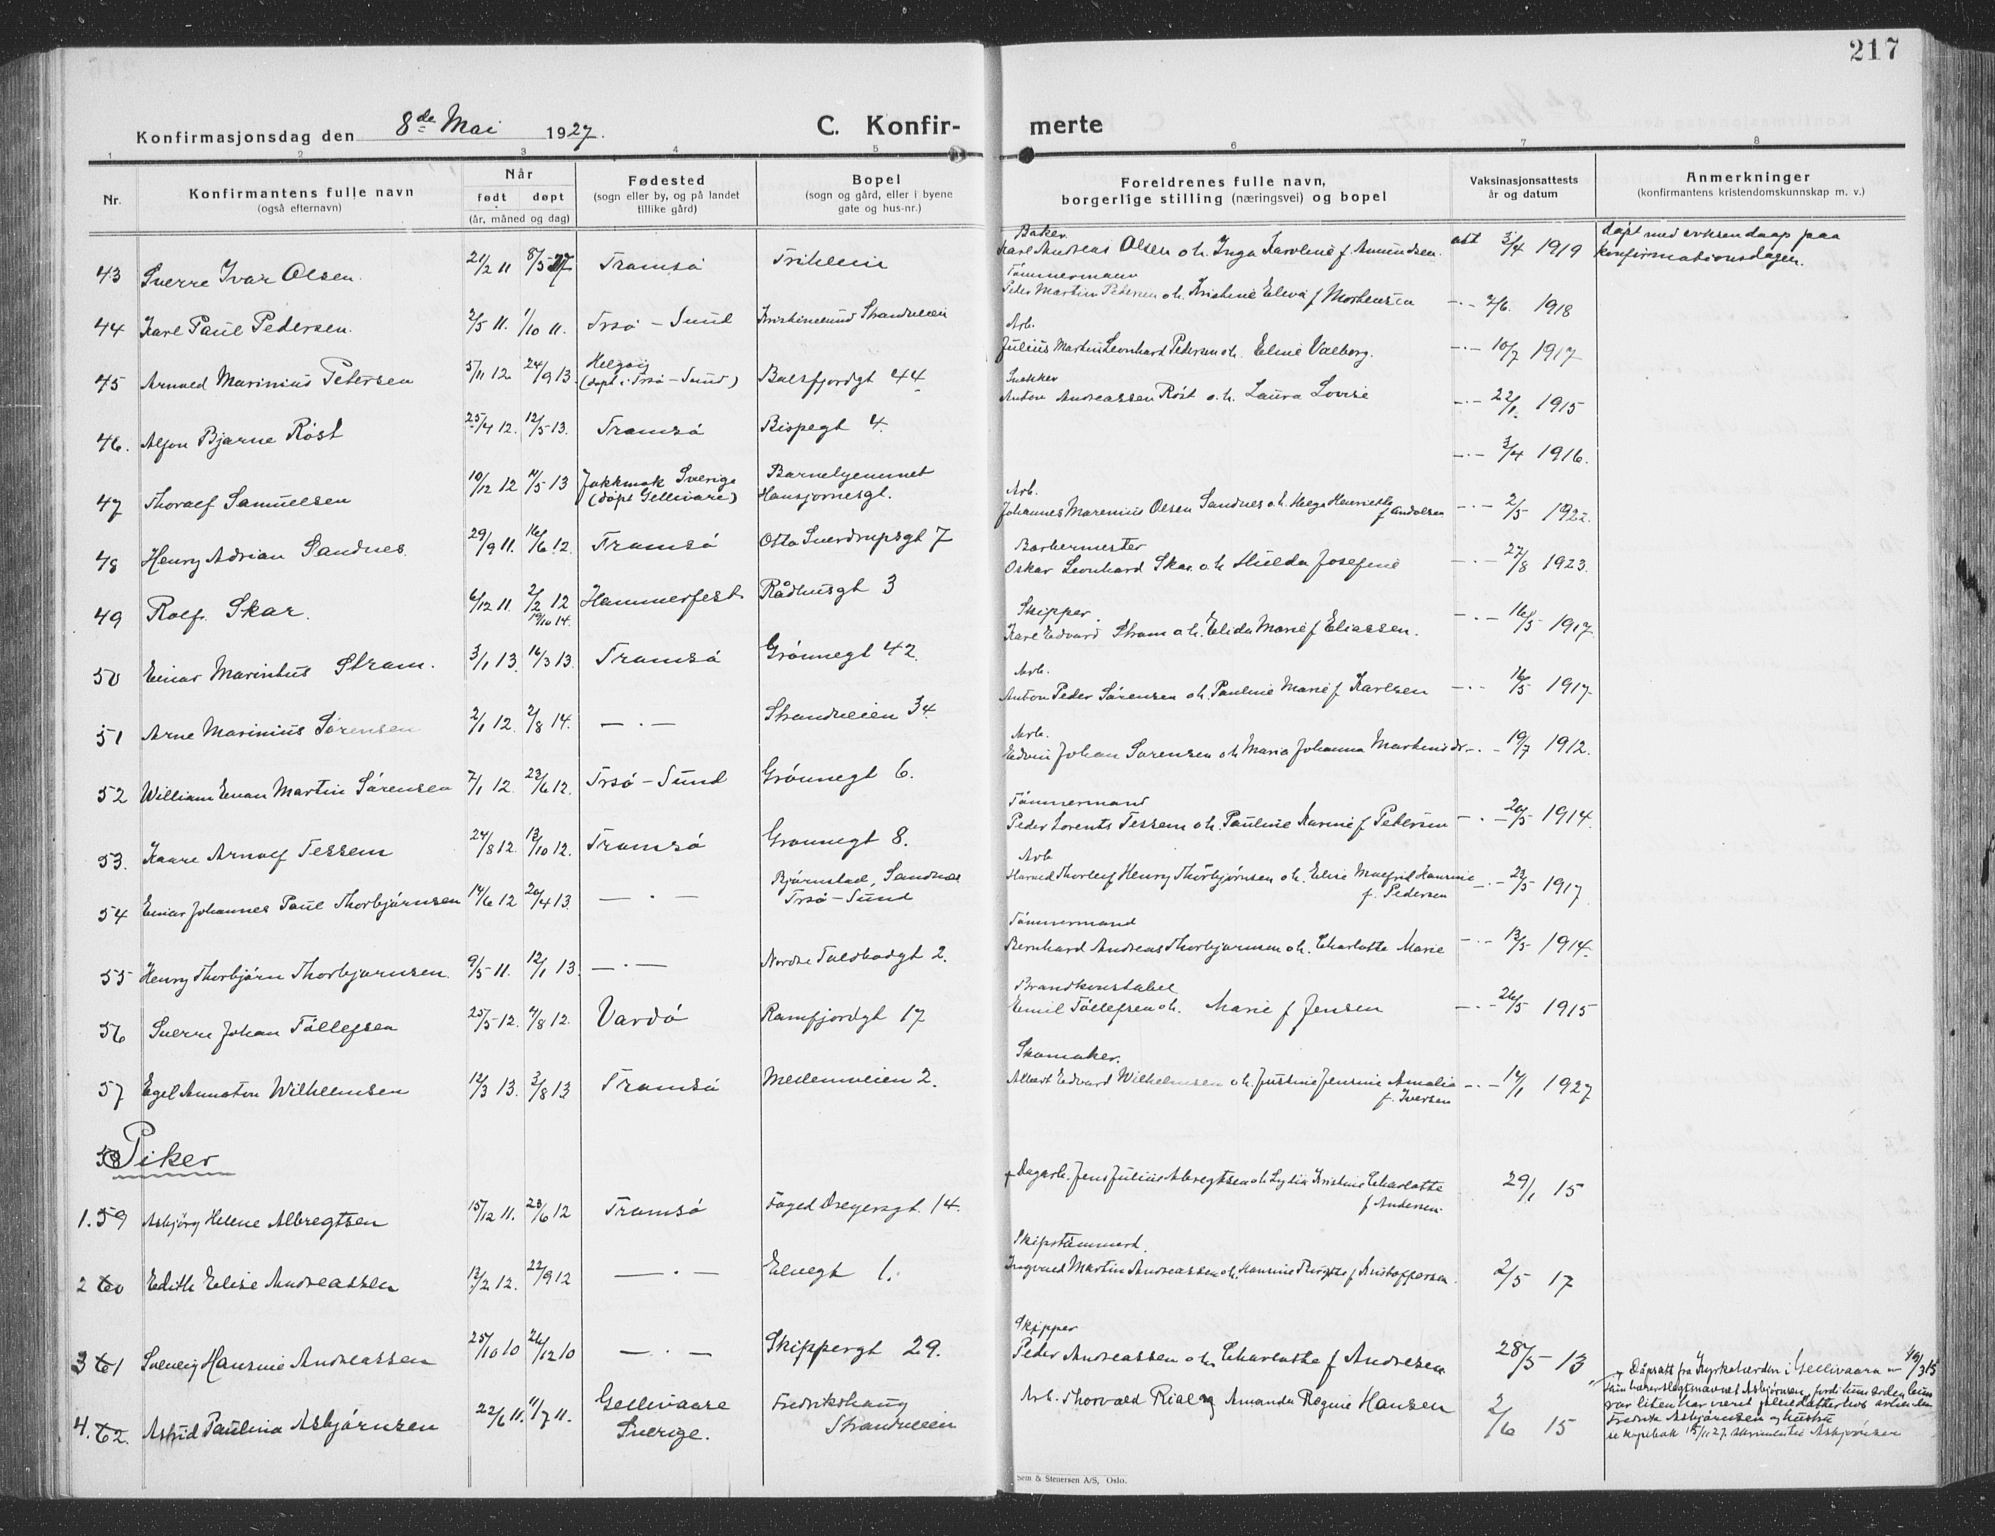 217
Konfirmasjonsdag den 8de Mai 1927.
C. Konfir- merte
1 2 3 4 5 6 7 8
Nr.
Konfirmantens fulle navn
(også efternavn)
Når
født døpt
(år, måned og dag)
Fødested
(sogn eller by, og på landet
tillike gård)
Bopel
(sogn og gård, eller i byene
gate og hus-nr.)
Foreldrenes fulle navn,
borgerlige stilling (næringsvei) og bopel
Vaksinasjonsattests
år og datum
Anmerkninger
(konfirmantens kristendomskunnskap m. v.)
43 Sverre Ivar Olsen. 21/2 11 8/5-27 Tromsø
Baker
Karl Andreas Olsen o. h. Inga Karoline f. Amundsen. att 3/4 1919
døpt med voksendaap paa
konfirmationsdagen.
44 Karl Paul Pedersen. 2/5 11. 1/10 11. Trsø - Sund Kristinelund Strandveien
Tømmermann
Peder Martin Pedersen o. h. Kristine Elva f Mortensen -·- 7/6. 1918
45 Arnold Marinius Petersen 5/11 12 24/9 13. Helgøy
(døpt i Trsø-Sund) Balsfjordgt 44
Arb.
Julius Martin Leonhard Pedersen o. h. Eline Valborg. -·- 10/7 1917
46. Alfon Bjarne Røst 25/4 12. 12/5 13. Tromsø Bispegt 4.
Snekker
Anton Andreassen Røst o. h. Laura Lovise -·- 22/1. 1915
47 Thoralf Samuelsen 10/12 12 4/5 13 Jokkmok Sverige
(døpt Gellivare) Barnehjemmet
Hansjordnesgt.
-·- 3/4 1916.
48 Henry Adrian Sandnes. 29/9 11. 16/6 12. Tromsø Otto Sverdrupsgt 7
Arb.
Johannes Marenius Olsen Sandnes o. h. Helga Henriette
f Andersen -·- 2/5 1922.
49 Rolf Skar. 6/12 11. 2/2 12
19/10 14. Hammerfest Rådhusgt 3
Barbermester
Oskar Leonhard Skar o. h Hulda Josefine -·- 27/8 1923.
50 Einar Marinius Strøm. 3/1 13. 16/3 13. Tromsø Grønnegt 42.
Skipper.
Karl Edvard Strøm o. h. Elida Marie f Eliassen. -·- 16/5 1917.
51 Arne Marinius Sørensen 2/1 12. 2/8 14. -·- Strandveien 34.
Arb.
Anton Peder Sørensen o. h. Pauline Marie f Karlsen -·- 16/5 1917.
52 William Evan Martin Sørensen 7/1 12. 23/6 12. Trsø - Sund Grønnegt 6.
Arb.
Edvin Johan Sørensen o. h. Maria Johanna Martinsdr -·- 19/7 1912.
53. Kaare Arnolf Tessem 24/8 12. 13/10 12. Tromsø Grønnegt 8.
Tømmermand
Peder Lorents Tessem o. h. Pauline Karine f Petersen -·- 20/5 1914.
54 Einar Johannes Paul Thorbjørnsen 14/6 12 20/4 13. -·- Bjørnstad, Sandnes
Trsø - Sund
Arb
Harald Thorleif Henry Thorbjørnsen o. h. Elise Magfrid Hansine
f. Pedersen -·- 23/5 1917.
55 Henry Thorbjørn Thorbjørnsen. 9/5 11. 12/1 13. -·- Nordre Toldbodgt 2.
Tømmermand
Bernhard Andreas Thorbjørnsen o. h. Charlotte Marie -·- 13/5 1914.
56 Sverre Johan Tøllefsen 25/5 12. 4/8 12. Vardø Ramfjordgt 17
Brandkonstabel
Emil Tøllefsen o. h. Marie f Jensen -·- 26/5 1915
57 Egil Annaton Wilhelmsen 12/3 13. 3/8 13 Tromsø Mellemveien 2.
Skomaker.
Albert Edvard Wilhelmsen o. h. Justine Jensine Amalia
f. Iversen -·- 14/1 1927
58 Piker
1. 59 Asbjørg Helene Albregtsen 15/12 11. 23/6 12 Tromsø Foged Dreyersgt. 14.
Dagarb. Jens Julius Albregtsen o. h. Lydia Kristine Charlotte
f Andersen. 29/1 15
2 60 Edith Elise Andreassen 13/2 12. 22/9 12 -·- Elvegt 1.
Skipstømmerm.
Ingvald Martin Andreassen o. h. Hansine Birgitte f Kristoffersen. 2/5 17
3 61 Solveig Hansine Andreassen 25/10 10 26/12 10 -·- Skippergt 29.
Skipper
Peder Andreassen o. h. Charlotte f Andresen 28/5 13
4. 62. Astrid Paulina Asbjørnsen 22/6 11. 11/7 11. Gellivaare
Sverige. Fredrikshaug
Strandveien
Arb. Thorvald Rial og Amanda Regine Hansen 2/6 15
Dåpsatt fra Kyrkoherden i Gellivaara
hun bærer slegtnavnet Asbjørnsen, fordi hun siden hun
var liten har været pleiedatter hos arbeider
Fredrik Asbjørnsen og hustru
se kopibok 15/11 27. Asbjørnsen
Sem & Stenersen A/S, Oslo.